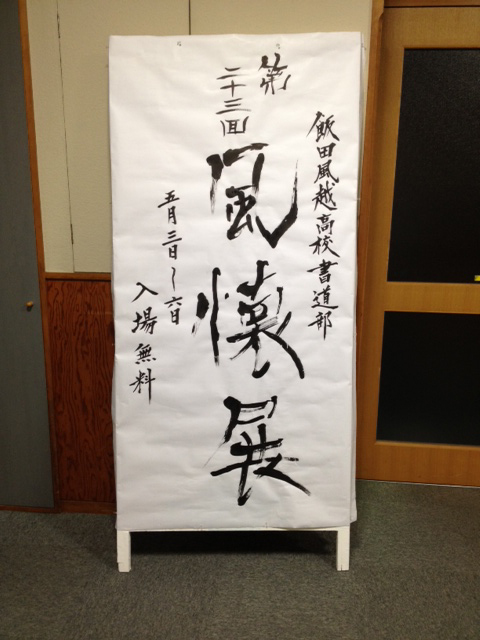 飯田風越高校書道部
第二十三回
風懐展
五月三日~六日
入場無料